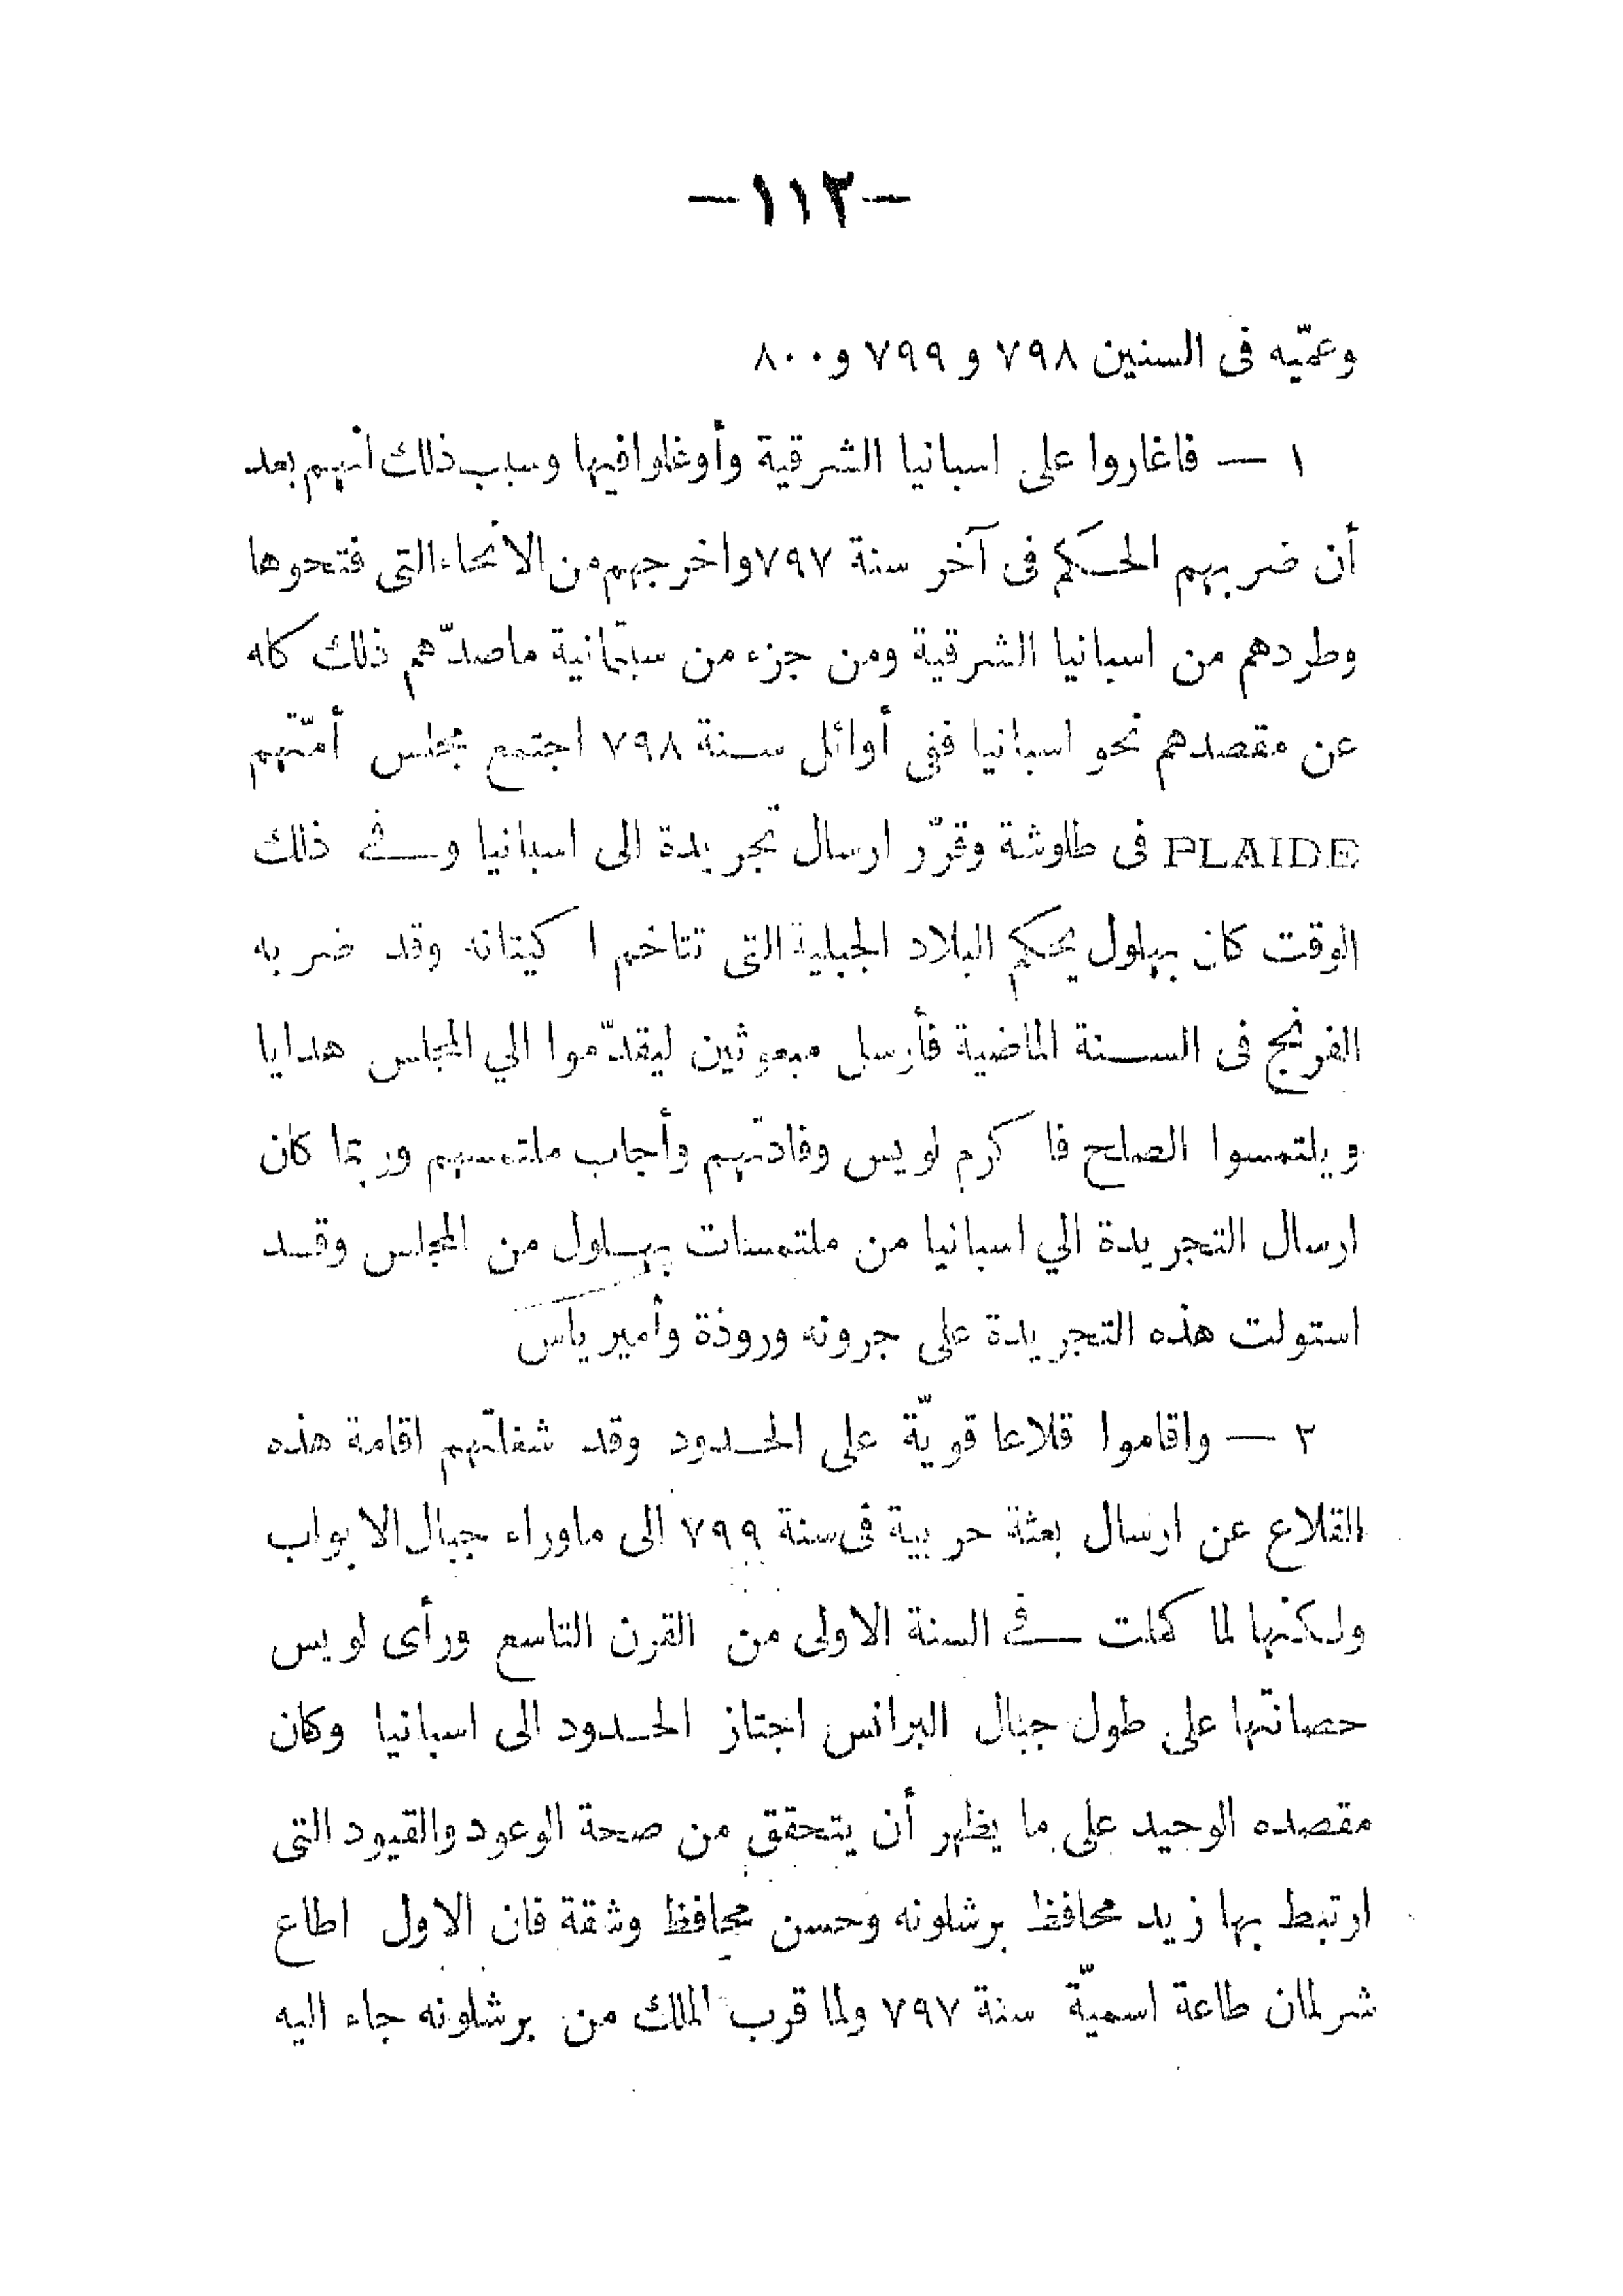 —١١٣—
وعمّيه فى السنين ٧٩٨ و ٧٩٩ و ٨٠٠
١ — فاغاروا على اسبانيا الشرقية وأوغلوا فيها وسبب ذلك انهم بعد
أن ضربهم الحكم فى آخر سنة ٧٩٧ واخرجهم من الانحاء التى فتحوها
وطردهم من اسبانيا الشرقية ومن جزء من سبتمانية ماصدّهم ذلك كله
عن مقصدهم نحو اسبانيا ففى أوائل سنة ٧٩٨ اجتمع مجلس أمّتهم
PLAIDE فى طلوشة وقرّر ارسال تجريدة الى اسبانيا وفى ذلك
الوقت كان بهلول يحكم البلاد الجبلية التى تتاخم اكيتانه وقد ضربه
الفرنج فى السنة الماضية فأرسل مبعوثين ليقدّموا الي المجلس هدايا
ويلتمسوا الصلح فاكرم لويس وفادتهم وأجاب ملتمسهم وربما كان
ارسال التجريدة الي اسبانيا من ملتمسات بهلول من المجلس وقد
استولت هذه التجريدة على جرونه وروذة وأمبرياس
٢ — واقاموا قلاعا قويّة على الحدود وقد شغلتهم اقامة هذه
القلاع عن ارسال بعثة حربية فى سنة ٧٩٩ الى ماوراء جبال الابواب
ولكنها لما كملت فى السنة الاولى من القرن التاسع ورأى لويس
حصانتها على طول جبال البرانس اجتاز الحدود الى اسبانيا وكان
مقصده الوحيد على ما يظهر أن يتحقق من صحة الوعود والقيود التى
ارتبط بها زيد محافظ برشلونه وحسن محافظ وشقة فان الاول اطاع
شرلمان طاعة اسميّة سنة ٧٩٧ ولما قرب الملك من برشلونه جاء اليه